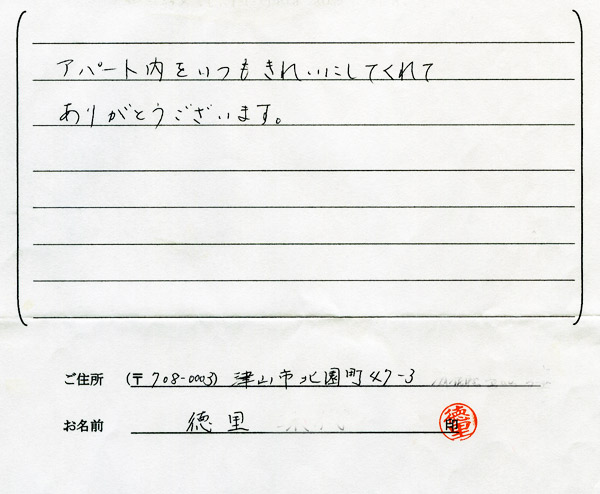 アパート内をいつもきれいにしてくれて
ありがとうございます。
ご住所 (〒708-0003) 津山市北園町47-3
お名前 徳里 印
徳里